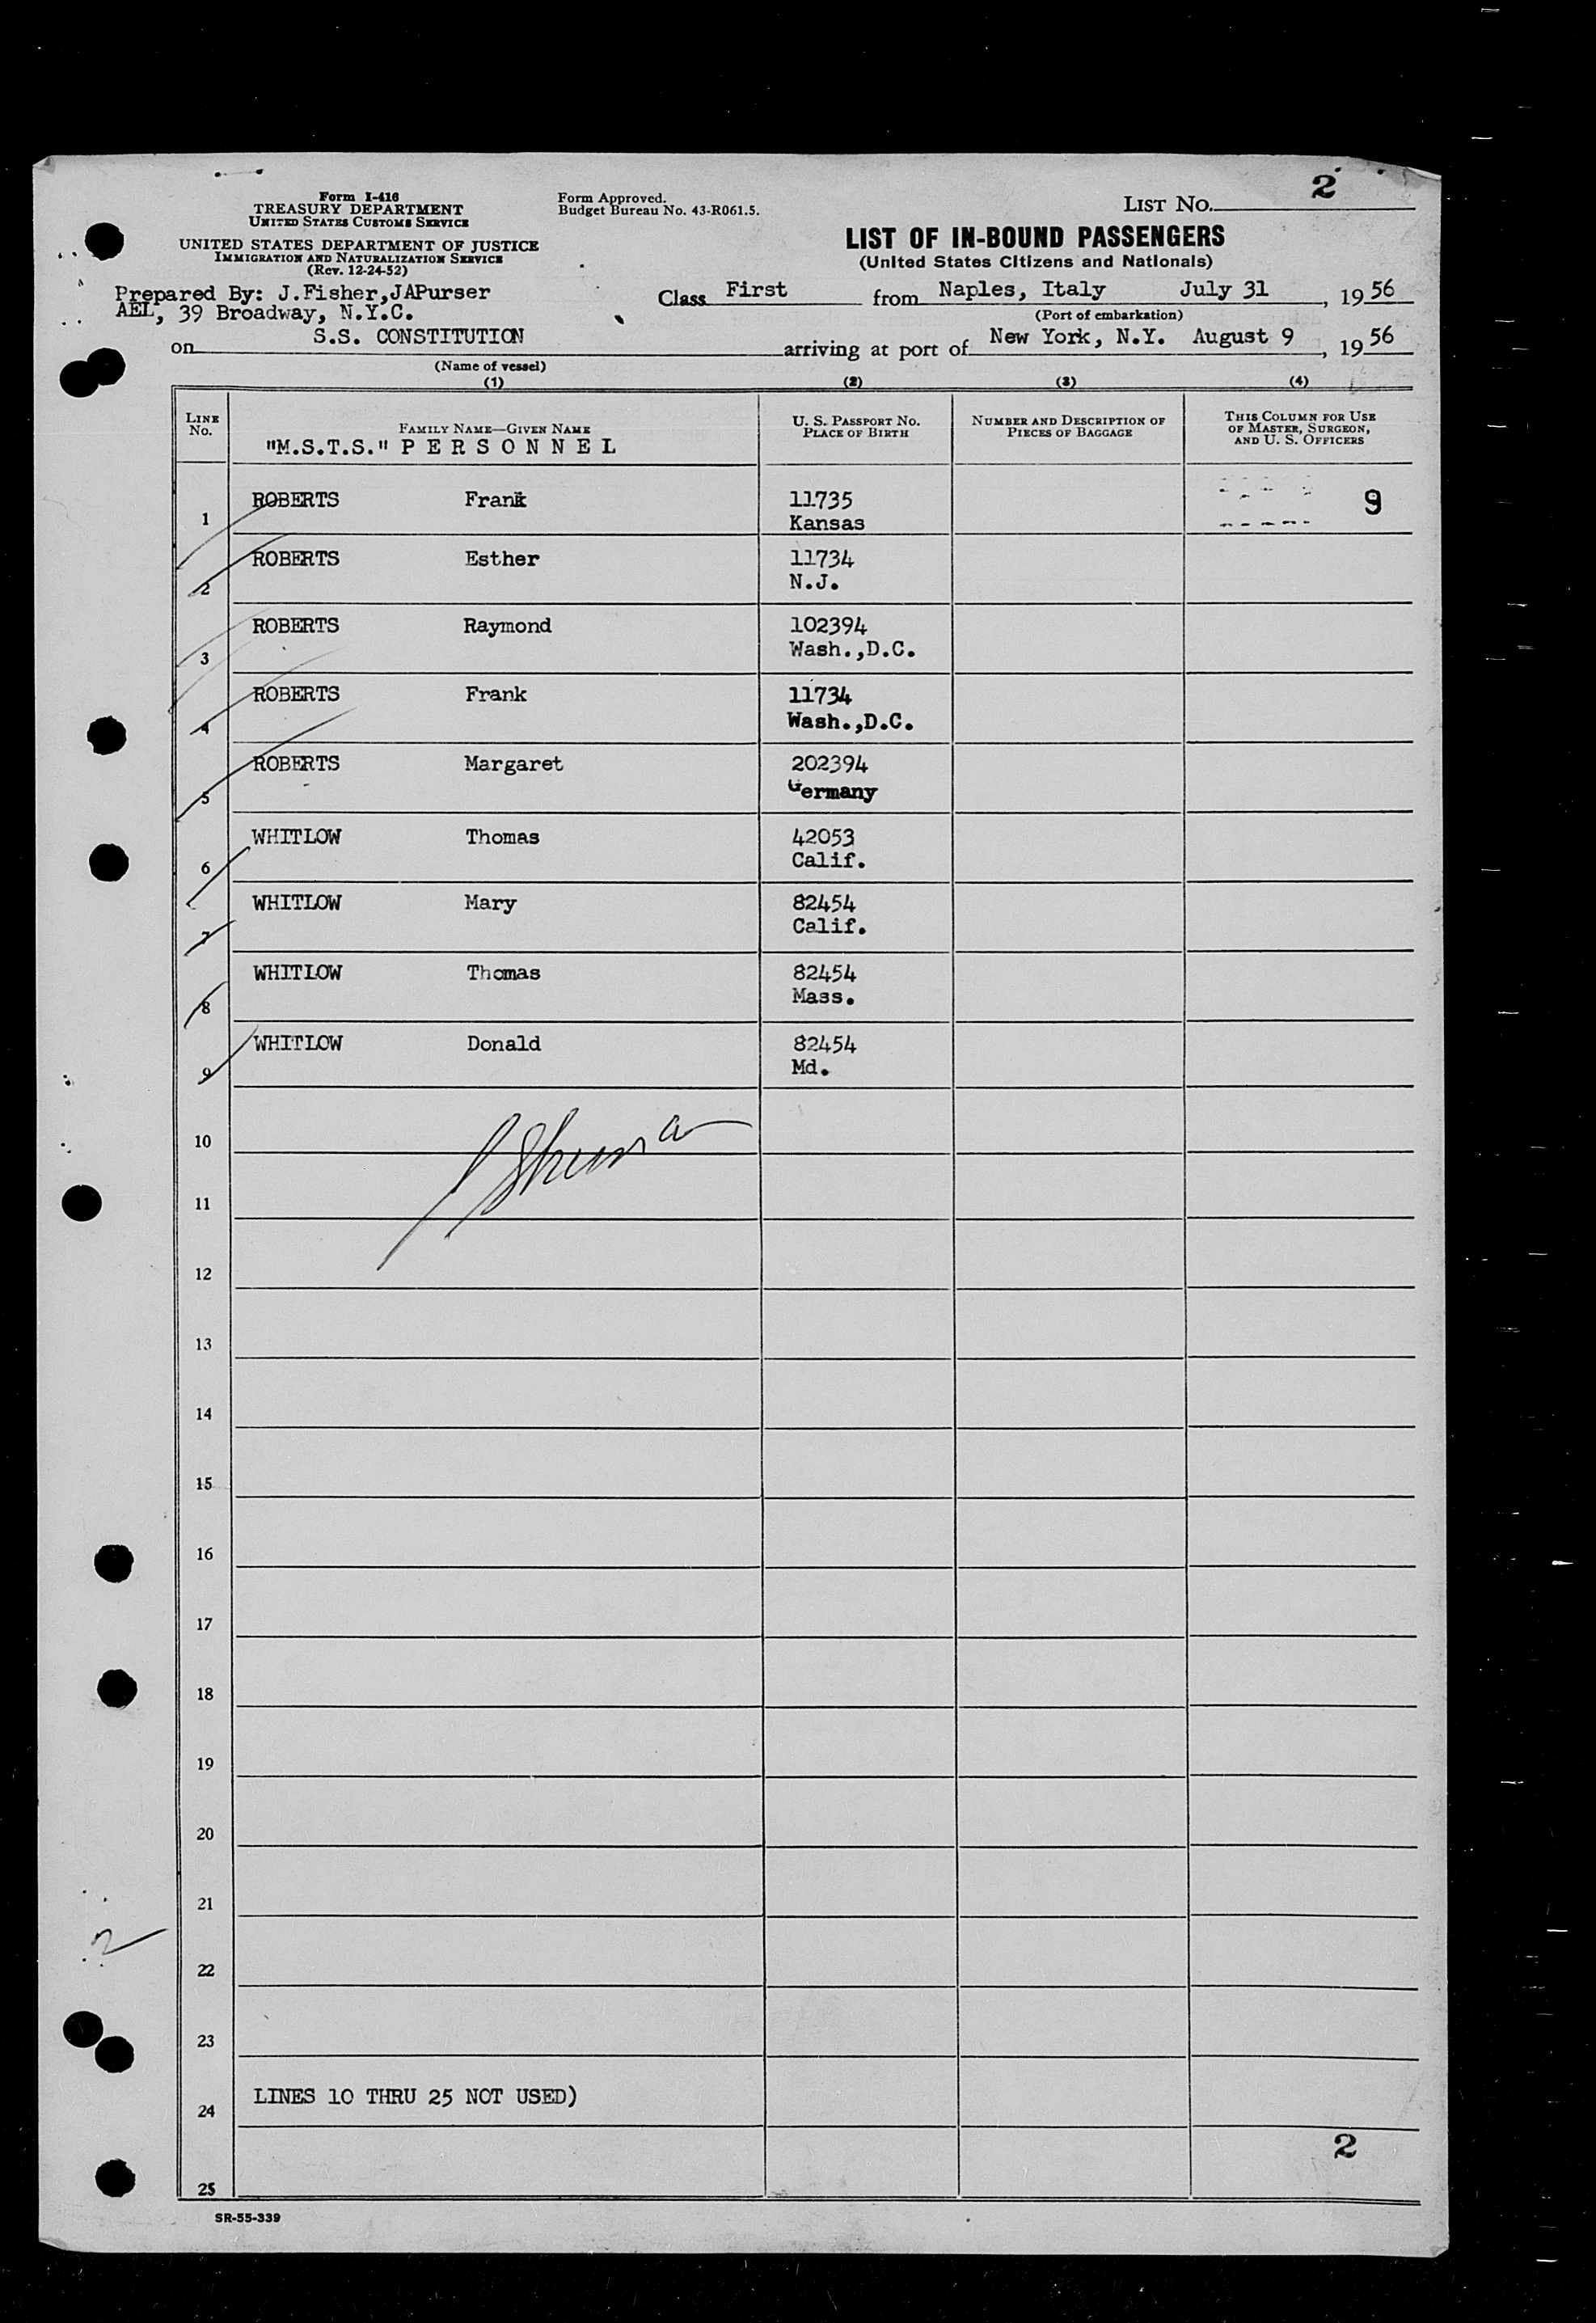 Form I-416
TREASURY DEPARTMENT
UNITED STATES CUSTOMS SERVICE
UNITED STATES DEPARTMENT OF JUSTICE
IMMIGRATION AND NATURALIZATION SERVICE
(Rev. 12-24-52)
Form Approved.
Budget Bureau No. 43-R061.5.
LIST NO. 2
LIST OF IN-BOUND PASSENGERS
(United States Citizens and Nationals)
Prepared By: J.Fisher,JAPurser
AEL, 39 Broadway, N.Y.C.
Class First from Naples, Italy July 31, 1956
(Port of embarkation)
on S.S. CONSTITUTION arriving at port of New York, N.Y. August 9, 1956
(Name of vessel)
(1) (2) (3) (4)
LINE No.
FAMILY NAME—GIVEN NAME
"M.S.T.S." P E R S O N N E L
U. S. PASSPORT NO.
PLACE OF BIRTH
NUMBER AND DESCRIPTION OF
PIECES OF BAGGAGE
THIS COLUMN FOR USE
OF MASTER, SURGEON,
AND U. S. OFFICERS
1 ROBERTS Frank 11735 9
Kansas
2 ROBERTS Esther 11734
N.J.
3 ROBERTS Raymond 102394
Wash.,D.C.
4 ROBERTS Frank 11734
Wash.,D.C.
5 ROBERTS Margaret 202394
Germany
6 WHITLOW Thomas 42053
Calif.
7 WHITLOW Mary 82454
Calif.
8 WHITLOW Thomas 82454
Mass.
9 WHITLOW Donald 82454
Md.
10
11
12
13
14
15
16
17
18
19
20
21
2
22
23
24 LINES 10 THRU 25 NOT USED)
2
25
SR-55-339